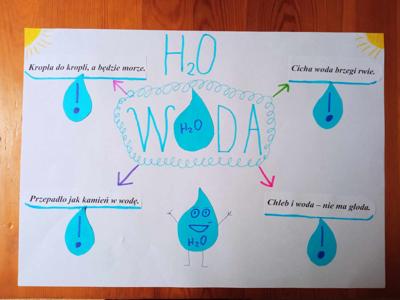 H2O
Kropla do kropli, a będzie morze.
Cicha woda brzegi rwie.
!
!
WODA
H2O
Przepadło jak kamień w wodę.
Chleb i woda – nie ma głoda.
!
!
H2O